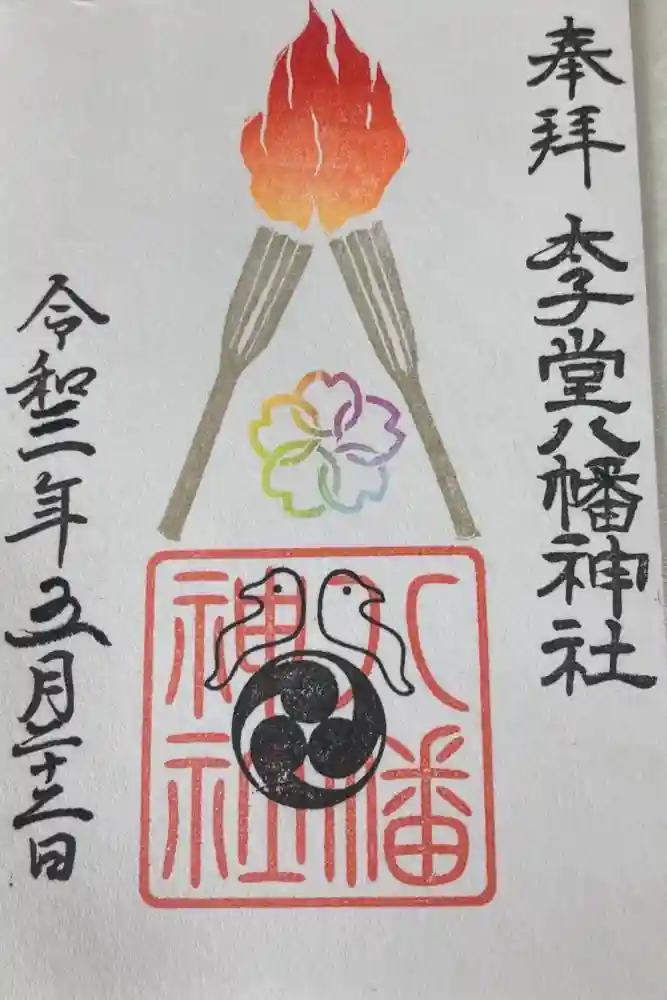 奉拝
李堂八幡神社
八幡
神社
令和三年五月二十二日